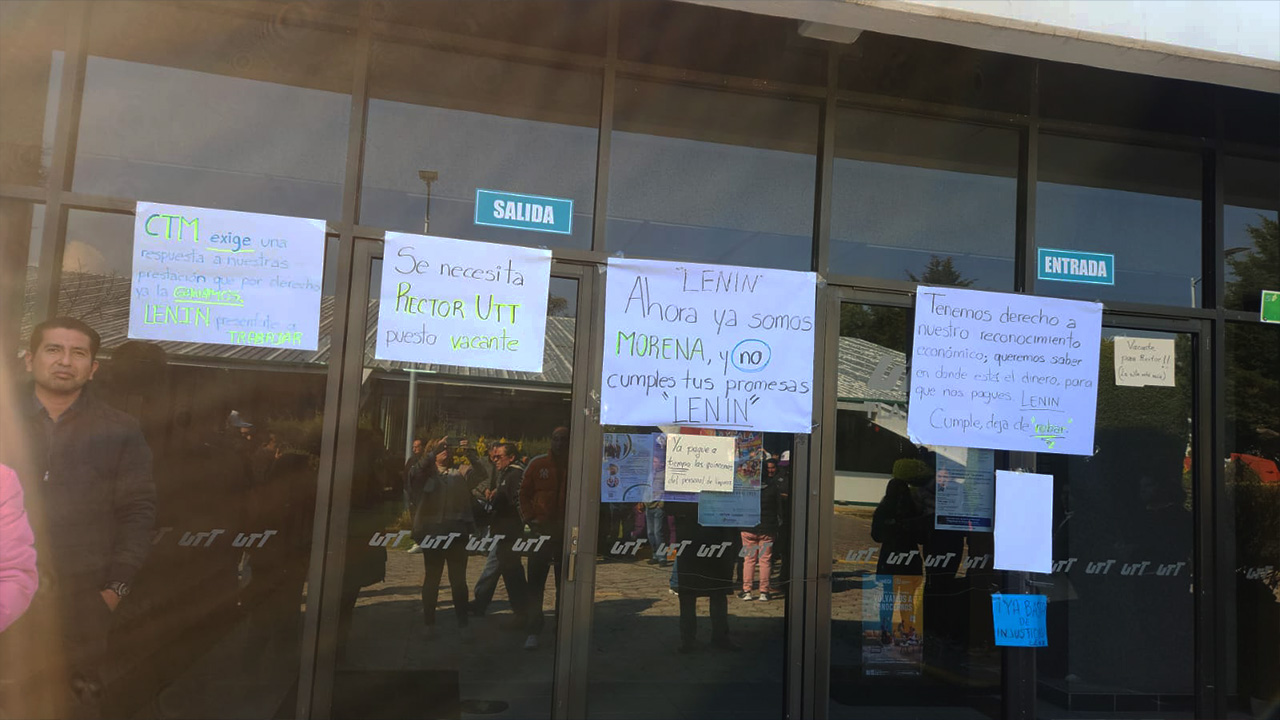 SALIDA
ENTRADA
CTM exige una
respuesta a nuestras
prestación que por derecho
ya la
LENIN presentate a
TRABAJAR
Se necesita
RECTOR UTT
puesto vacante
"LENIN"
Ahora ya somos
MORENA, y no
cumples tus promesas
"LENIN"
Ya pague a
tiempo las quincenas
del personal de
Tenemos derecho a
nuestro reconocimiento
económico; queremos saber
en donde está el dinero, para
que nos pagues. LENIN
Cumple, deja de "robar"
Vacante
para Rector!!
(La silla está vacía)
¡YA BASTA
DE
INJUSTICIAS
UTT UTT
UTT UTT UTT UTT
UTT UTT UTT UTT
UTT UTT UTT
UTT UTT UTT UTT